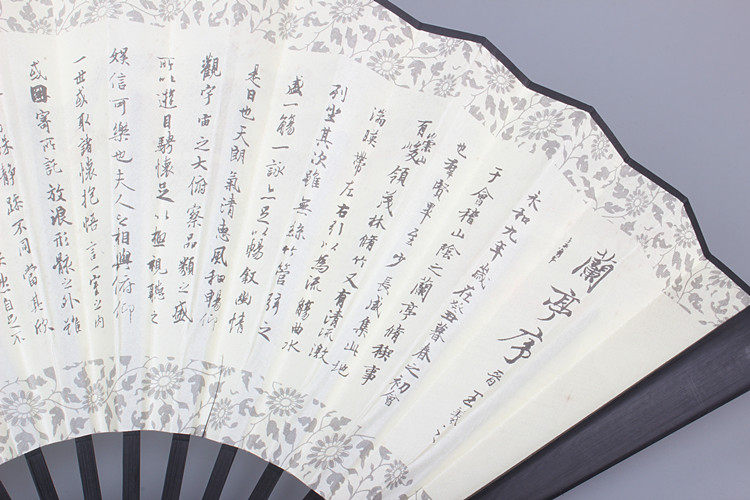 蘭亭序
晉王羲之
永和九年歲在癸丑暮春之初會
于會稽山陰之蘭亭脩稧事
也群賢畢至少長咸集此地
有崇山峻領茂林脩竹又有清流激
湍暎帶左右引以為流觴曲水
列坐其次雖無絲竹管弦之
盛一觴一詠亦足以暢敘幽情
是日也天朗氣清惠風和暢仰
觀宇宙之大俯察品類之盛
所以遊目騁懷足以極視聽之
娛信可樂也夫人之相與俯仰
一世或取諸懷抱悟言一室之內
或因寄所託放浪形骸之外雖
殊靜躁不同當其欣